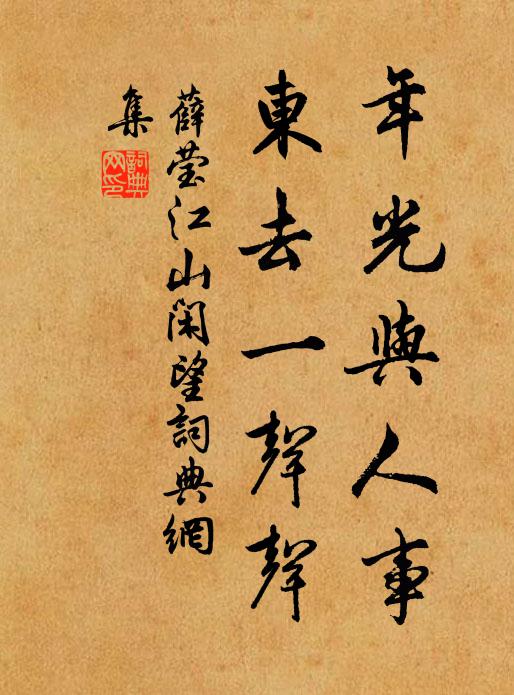 年光與人事
東去一聲聲
薛瑩江山閑望詞典網
集
詞典
網印